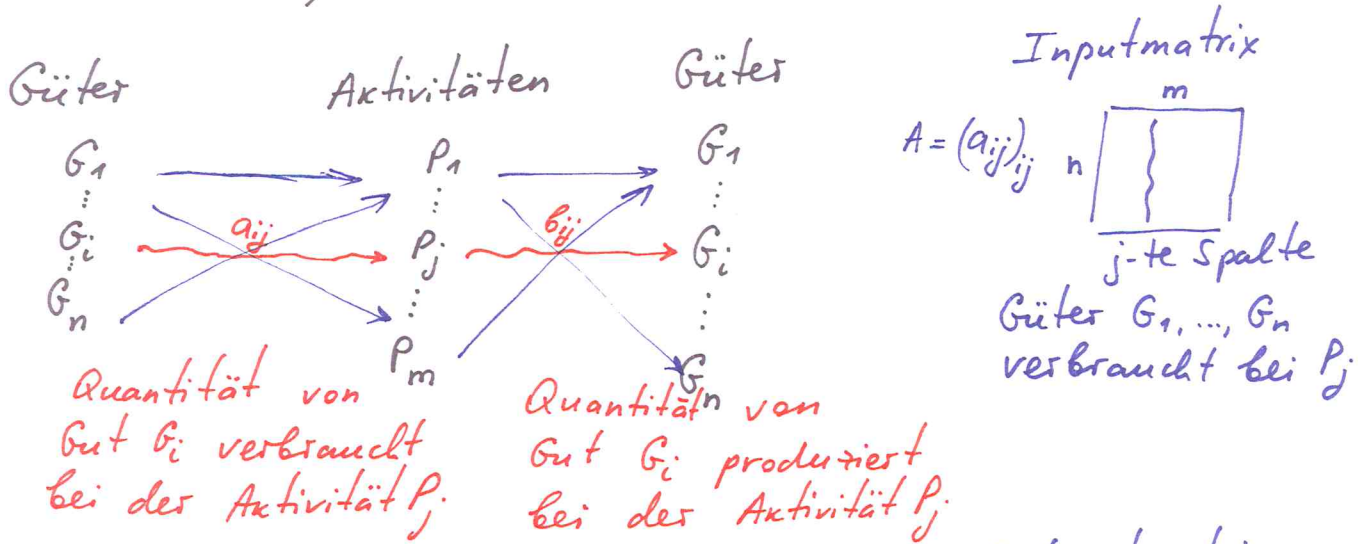 Güter Aktivitäten Güter
G1 P1 G1
⋮ ⋮ ⋮
Gi aij Pj bij Gi
⋮ ⋮ ⋮
Gn Pm Gn
Quantität von
Gut Gi verbraucht
bei der Aktivität Pj
Quantität von
Gut Gi produziert
bei der Aktivität Pj
Inputmatrix
m
A = (aij)ij n
j-te Spalte
Güter G1, ..., Gn
verbraucht bei Pj